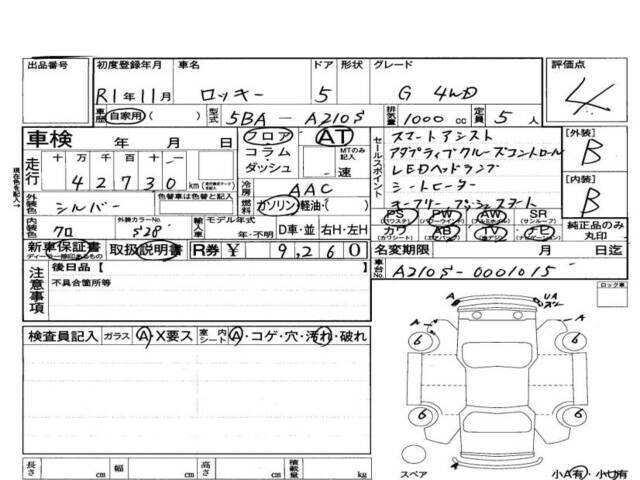 出品番号 初度登録年月 車名 ドア 形状 グレード 評価点
R1年11月 ロッキー 5 G 4WD 4
車歴 自家用( ) 型式 5BA-A210S 排気量 1000cc 定員 5人
車検 年 月 日 フロア AT セールスポイント スマートアシスト [外装]
コラム・ダッシュ MTのみ記入 速 アダプティブクルーズコントロール B
現在色を記入→ 走行 十 万 千 百 十 一 LEDヘッドランプ
4 2 7 3 0 km 冷房 AAC シートヒーター [内装]
外装色 シルバー 色替車は色替と記入 燃料 ガソリン・軽油・( ) B
PS PW AW SR
(パワステ) (パワーウインド) (アルミホイル) (サンルーフ) 純正品のみ丸印
内装色 クロ 外装カラーNo. S28 輸入車 モデル年式 年・不明 D車・並 右H・左H カワ AB TV ナビ
(カワシート) (エアバッグ)
新車保証書 取扱説明書 R券 ¥ 9,260 名変期限 月 日迄
ディーラー捺印あるもの
注意事項 後日品【 】 車台No. A210S-0001015
不具合箇所等 ロック車
UA
A A
検査員記入 ガラス A・X要ス 室内シート A・コゲ・穴・汚れ・破れ
6 6
6 6
長さ cm 幅 cm 高さ cm 積載量 kg スペア 小A有・小U有